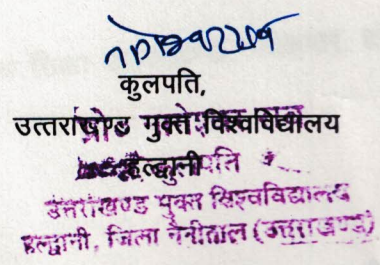 कुलपति,
उत्तराखण्ड मुक्त विश्वविद्यालय
हल्द्वानी
कुलपति
उत्तराखण्ड मुक्त विश्वविद्यालय
हल्द्वानी, जिला नैनीताल (उत्तराखण्ड)